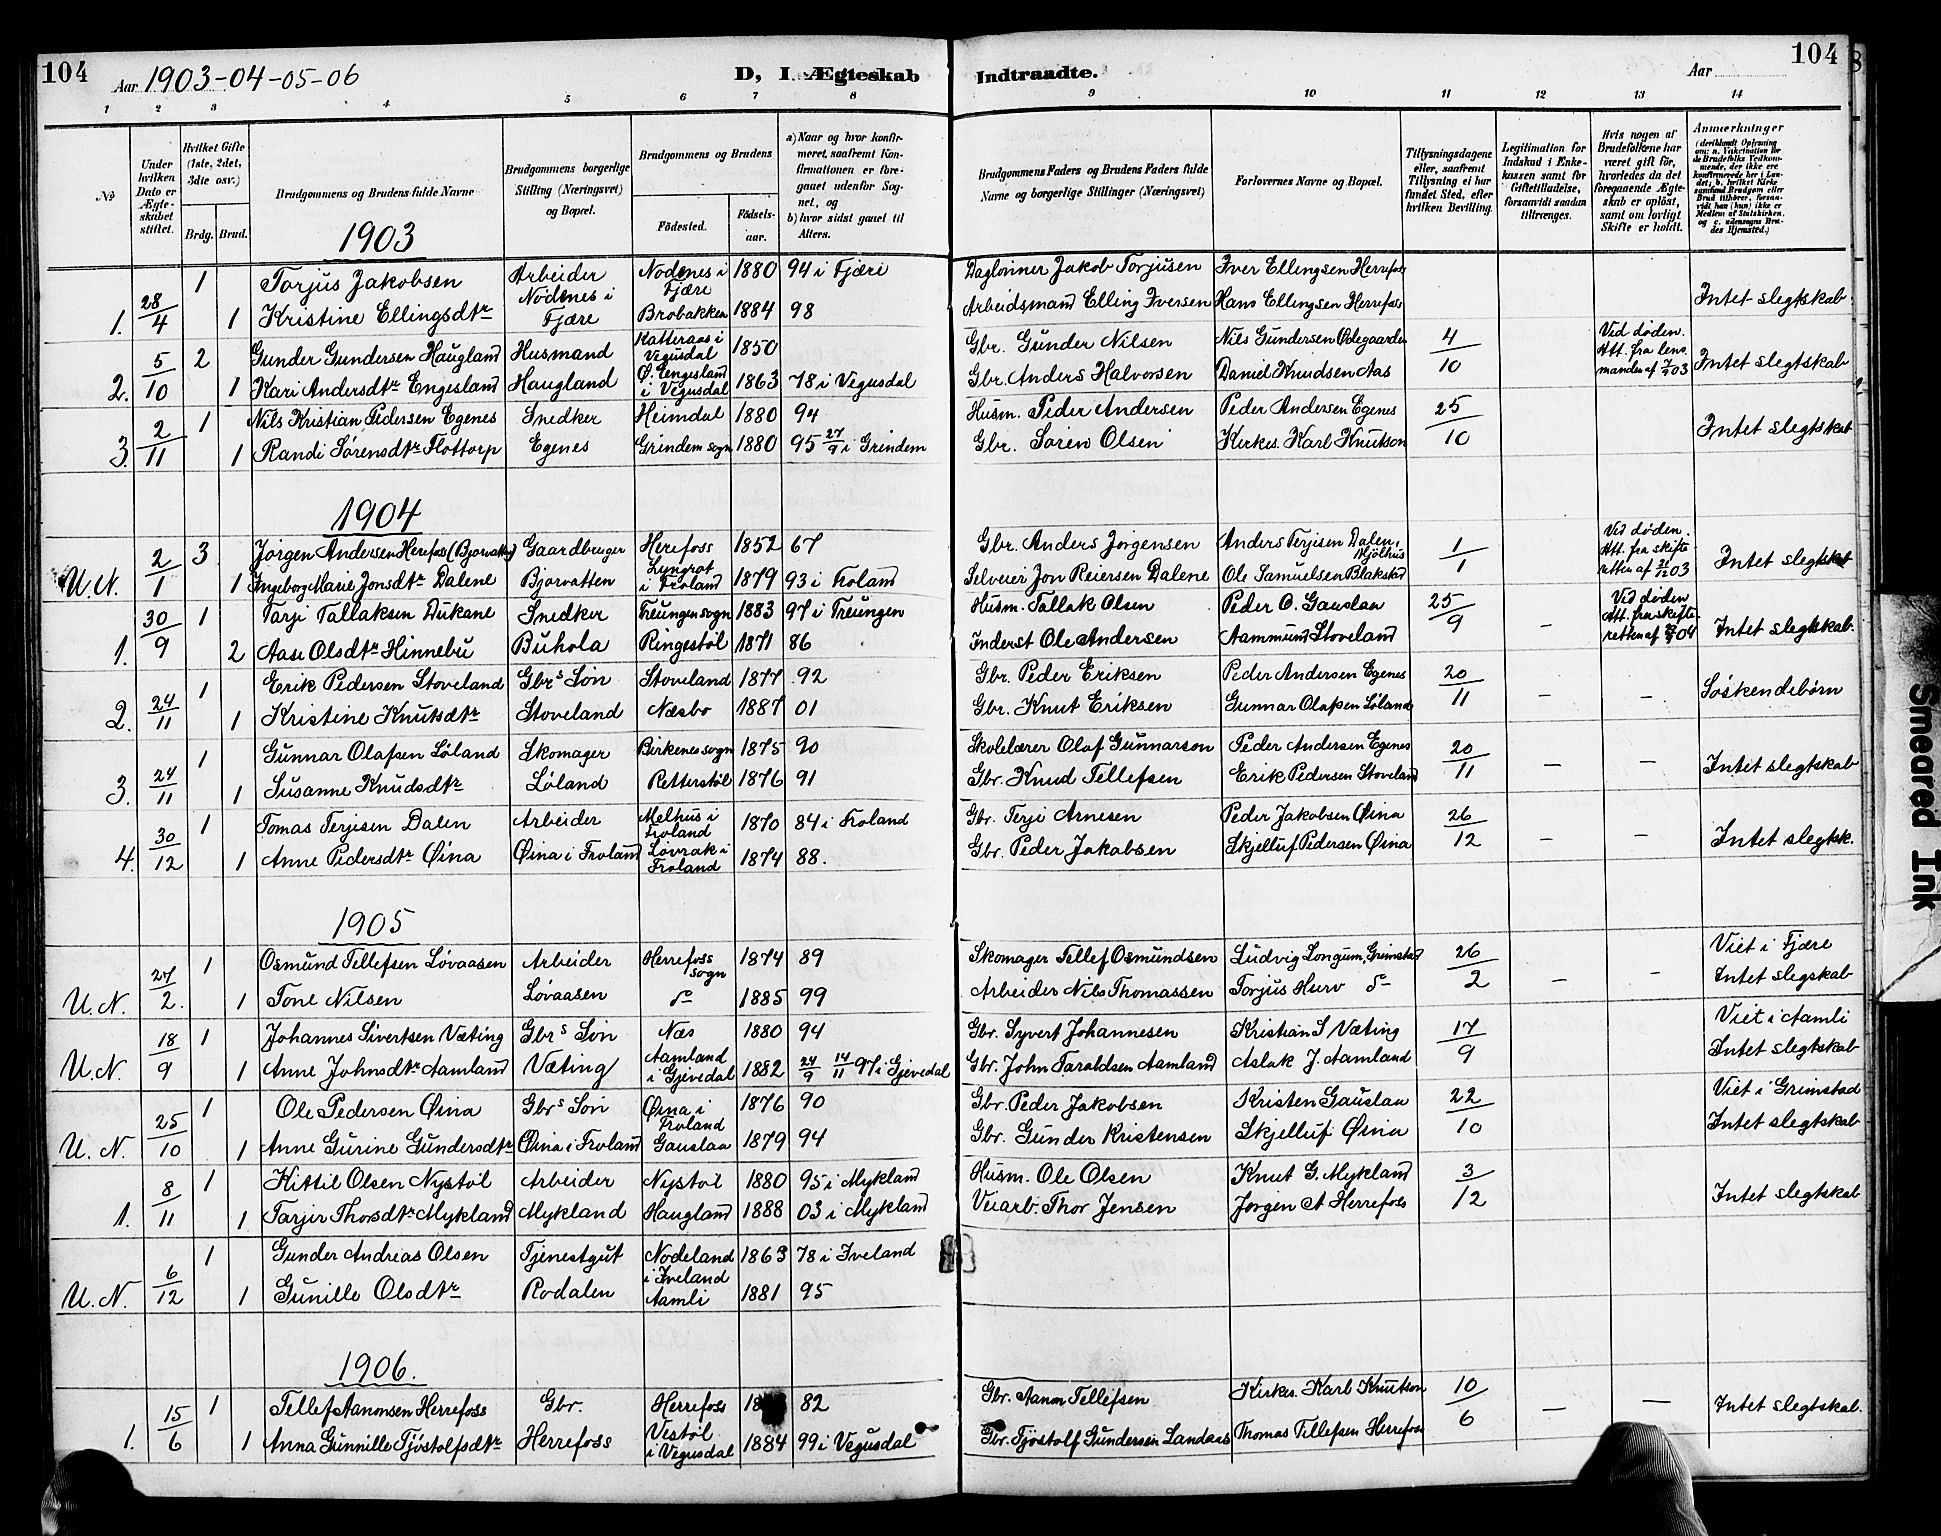 104
Aar 1903-04-05-06
D, I. Ægteskab Indtraadte.
Aar
104
8
1 2 3 4 5 6 7 8 9 10 11 12 13 14
№
Under hvilken Dato er Ægteskabet stiftet.
Hvilket Gifte (1ste, 2det, 3die osv.)
Brdg. Brud.
Brudgommens og Brudens fulde Navne
Brudgommens borgerlige Stilling (Næringsvei) og Bopæl.
Brudgommens og Brudens
Födested.
Födsels-aar.
a) Naar og hvor konfirmeret, saafremt Konfirmationen er foregaaet udenfor Sognet, og
b) hvor sidst gaaet til Alters.
Brudgommens Faders og Brudens Faders fulde Navne og borgerlige Stillinger (Næringsvei)
Forlovernes Navne og Bopæl.
Tillysningsdagene eller, saafremt Tillysning ei har fundet Sted, efter hvilken Bevilling.
Legitimation for Indskud i Enkekassen samt for Giftetilladelse, forsaavidt saadan tiltrænges.
Hvis nogen af Brudefolkene har været gift för, hvorledes da det foregaaende Ægteskab er oplöst, samt om lovligt Skifte er holdt.
Anmerkninger (deriblandt Oplysning om: a. Vakcination for de Brudefolks Vedkommende, der ikke ere konfirmerede her i Landet; b. hvilket Kirkesamfund Brudgom eller Brud tilhörer, forsaavidt han (hun) ikke er Medlem af Statskirken, og c. udensogns Brudes Hjemsted.)
1903
1. 28/4 1 Torjus Jakobsen Arbeider Nodenes i Fjære 1880 94 i Fjære Daglønner Jakob Torjusen Iver Ellingsen Herrefos
1 Kristine Ellingsdtr Nodenes i Fjære Brobakken 1884 98 Arbeidsmand Elling Iversen Hans Ellingsen Herrefoss Intet slegtskab.
2. 5/10 2 Gunder Gundersen Haugland Husmand Katteraas i Vegusdal 1850 Gbr. Gunder Nilsen Nils Gundersen Ødegaarden 4/10 Ved døden. Att. fra lensmanden af 7/9 03
1 Kari Andersdtr Engesland Haugland Ø. Engesland i Vegusdal 1863 78 i Vegusdal Gbr. Anders Halvorsen Daniel Knudsen Aas Intet slegtskab
3. 2/11 1 Nils Kristian Pedersen Egenes Snedker Heimdal 1880 94 Husm. Peder Andersen Peder Andersen Egenes 25/10
1 Randi Sørensdtr Flottorp Egenes Grindem sogn 1880 95 27/9 i Grindem Gbr. Søren Olsen Kirkes. Karl Knutson Intet slegtskab
1904
U.N. 2/1 3 Jørgen Andersen Herefoss (Bjorvatten) Gaardbruger Herefoss 1852 67 Gbr. Anders Jørgensen Anders Terjesen Dalen, Mjølhus 1/1 Ved døden. Att. fra skifteretten af 31/12 03
1 Ingeborg Marie Jonsdtr Dalene Bjorvatten Lyngrot i Froland 1879 93 i Froland Selveier Jon Reiersen Dalene Ole Samuelsen Blakstad Intet slegtskab
1. 30/9 1 Tarji Tallaksen Dukane Snedker Treungen sogn 1883 97 i Treungen Husm. Tallak Olsen Peder O. Gauslaa 25/9 – Ved døden Att. fra skifteretten af 04
2 Aase Olsdtr Hinnebu Buhola Ringestøl 1871 86 Inderst Ole Andersen Aammund Stoveland Intet slegtskab.
2. 24/11 1 Erik Pedersen Stoveland Gbrs Søn Stoveland 1877 92 Gbr. Peder Eriksen Peder Andersen Egenes 20/11 – –
1 Kristine Knutsdtr Stoveland Næsbo 1887 01 Gbr. Knut Eriksen Gunnar Olafsen Løland Søskendebørn
3. 24/11 1 Gunnar Olafsen Løland Skomager Birkenes sogn 1875 90 Skolelærer Olaf Gunnarson Peder Andersen Egenes 20/11 – –
1 Susanne Knudsdtr Løland Retterstøl 1876 91 Gbr. Knud Tellefsen Erik Pedersen Stoveland Intet slegtskab
4. 30/12 1 Tomas Terjesen Dalen Arbeider Melhus i Froland 1870 84 i Froland Gbr. Terje Arnesen Peder Jakobsen Øina 26/12 – –
1 Anne Pedersdtr Øina Øina i Froland Løvrak i Froland 1874 88. Gbr. Peder Jakobsen Skjelluf Pedersen Øina Intet slegtsk.
1905
U.N. 27/2. 1 Osmund Tellefsen Løvaasen Arbeider Herrefoss sogn 1874 89 Skomager Tellef Osmundsen Ludvig Longum, Grimstad 26/2 – – Viet i Fjære
1 Tone Nilsen Løvaasen do 1885 99 Arbeider Nils Thomassen Torjus Hurv do Intet slegskab
U.N. 18/9 1 Johannes Sivertsen Væting Gbrs Søn Næs 1880 94 Gbr. Syvert Johannesen Kristian S Væting 17/9 Viet i Aamli
1 Anne Johnsdtr Aamland Væting Aamland i Gjevedal 1882 24/9 14/11 97 i Gjevedal Gbr. John Taraldsen Aamland Aslak J. Aamland Intet slegskab
U.N. 25/10 1 Ole Pedersen Øina Gbrs Søn Øina i Froland 1876 90 Gbr. Peder Jakobsen Kristen Gauslaa 22/10 Viet i Grimstad
1 Anne Gurine Gundersdtr Øina i Froland Gauslaa 1879 94 Gbr. Gunder Kristensen Skjelluf Øina Intet slegtskab
1. 8/11 1 Kittil Olsen Nystøl Arbeider Nystøl 1880 95 i Mykland Husm. Ole Olsen Knut G. Mykland 3/12
1 Tarjer Thorsdtr Mykland Mykland Haugland 1888 03 i Mykland Veiarb. Thor Jensen Jørgen A Herrefoss Intet slegtskab
U.N. 6/12 1 Gunder Andreas Olsen Tjenestgut Nodeland i Iveland 1863 78 i Iveland
1 Gunille Olsdtr Rodalen Aamli 1881 95
1906.
1. 15/6 1 Tellef Aanonsen Herrefoss Gbr. Herrefoss 18 82 Gbr. Aanon Tellefsen Kirkes. Karl Knutson 10/6 – –
1 Anna Gunnille Tjøstolfsdtr Herrefoss Vestøl i Vegusdal 1884 99 i Vegusdal Gbr. Tjøstolf Gundersen Landaas Thomas Tellefsen Herrefoss Intet slegtskab.
Smeared Ink